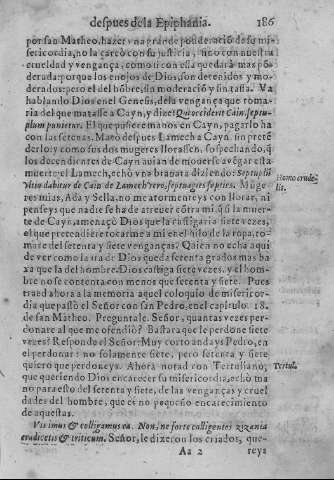 despues de la Epiphania. 186
por san Matheo, hazer vna grande põderaciõ de su mi-
sericordia, no la careò con su justicia, sino con nuestra
crueldad y vengança, como si con esta quedarà mas põ-
derada: porque los enojos de Dios, son detenidos y mo-
derados: pero el del hõbre, sin moderació y sin tassa. Va
hablando Dios en el Genesis, de la vengança que toma-
ria del que matasse a Cayn, y dize: Qui occiderit Cain, septu-
plum punietur. El que pusiere manos en Cayn, pagarlo ha
con las setenas. Matò despues Lamech a Cayn sin preté
derlo: y como sus dos mugeres llorassen, sospechando, q̃
los decendientes de Cayn auian de mouerse a végar esta
muerte; el Lamech, echò vna brauata diziendo: Septuplũ
vltio dabitur de Cain, de Lamech vero, septuagies septies. Muge
res mias, Ada y Sella, no me atormenteys con llorar, ni
penseys que nadie se ha de atreuer cõtra mi, q̃ si la muer
te de Cayn, amenaçò Dios que la castigaria siete vezes,
el que pretendiere tocarme a mi en el hilo de la ropa, to-
marse del setenta y siete venganças. Quien no echa aqui
de ver como la ira de Dios queda setenta grados mas ba
xa que la del hombre. Dios castiga siete vezes, y el hom-
bre no se contenta con menos que setenta y siete. Pues
traed ahora a la memoria aquel coloquio de misericor-
dia que passò el Señor con san Pedro, en el capitulo. 18.
de san Matheo. Preguntale. Señor, quantas vezes per-
donare al que me ofendiò? Bastara que le perdone siete
vezes? Responde el Señor: Muy corto andays Pedro, en
el perdonar: no solamente siete, pero setenta y siete
quiero que perdoneys. Ahora notad con Tertuliano;
que queriendo Dios encarecer su misericordia, echò ma
no para esto del setenta y siete, de las venganças y cruel
dades del hombre, que es no pequeño encarecimiento
de aquestas.
Vis imus & colligamus ea. Non, ne forte colligentes zizania
eradicetis & triticum. Señor, le dizen los criados, que-
Aa 2 reys
Homo crude-
lis.
Tertul.